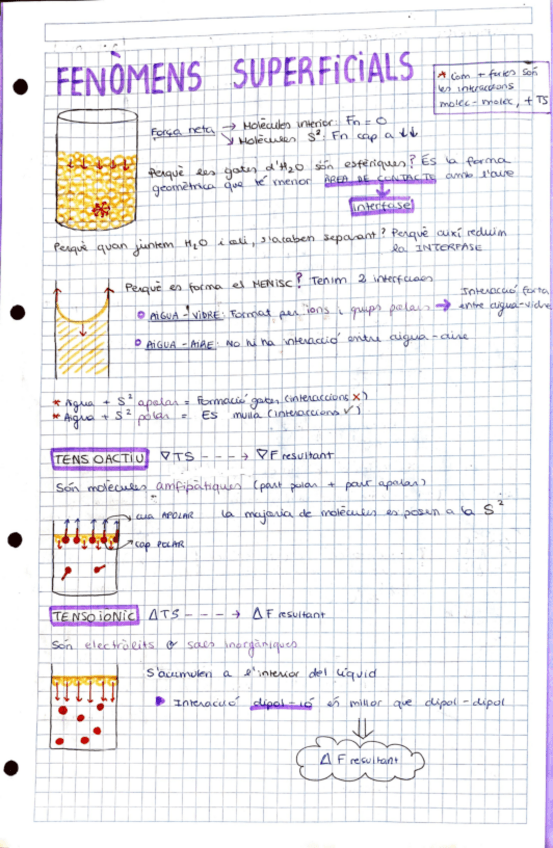 FENÒMENS SUPERFICIALS
* Com + fortes són
les interaccions
molèc-molèc, + TS
Força neta → Molècules interior: Fn = 0
↘ Molècules S²: Fn cap a ↓↓
Perquè les gotes d'H₂O són esfèriques? És la forma
geomètrica que té menor ÀREA DE CONTACTE amb l'aire
interfase
Perquè quan juntem H₂O i oli, s'acaben separant? Perquè així reduïm
la INTERFASE
Perquè es forma el MENISC? Tenim 2 interfases
AIGUA-VIDRE: Format per ions i grups polars → Interacció forta
entre aigua-vidre
AIGUA-AIRE: No hi ha interacció entre aigua-aire
* Aigua + S² apolar = Formació gotes (interaccions X)
* Aigua + S² polar = ES mulla (interaccions ✓)
TENSOACTIU ▽TS ---→ ▽F resultant
Són molècules amfipàtiques (part polar + part apolar)
cua APOLAR la majoria de molècules es posen a la S²
cap POLAR
TENSOIÒNIC △TS ---→ △F resultant
Són electròlits o sals inorgàniques
S'acumulen a l'interior del líquid
Interacció dipol-ió és millor que dipol-dipol
△ F resultant